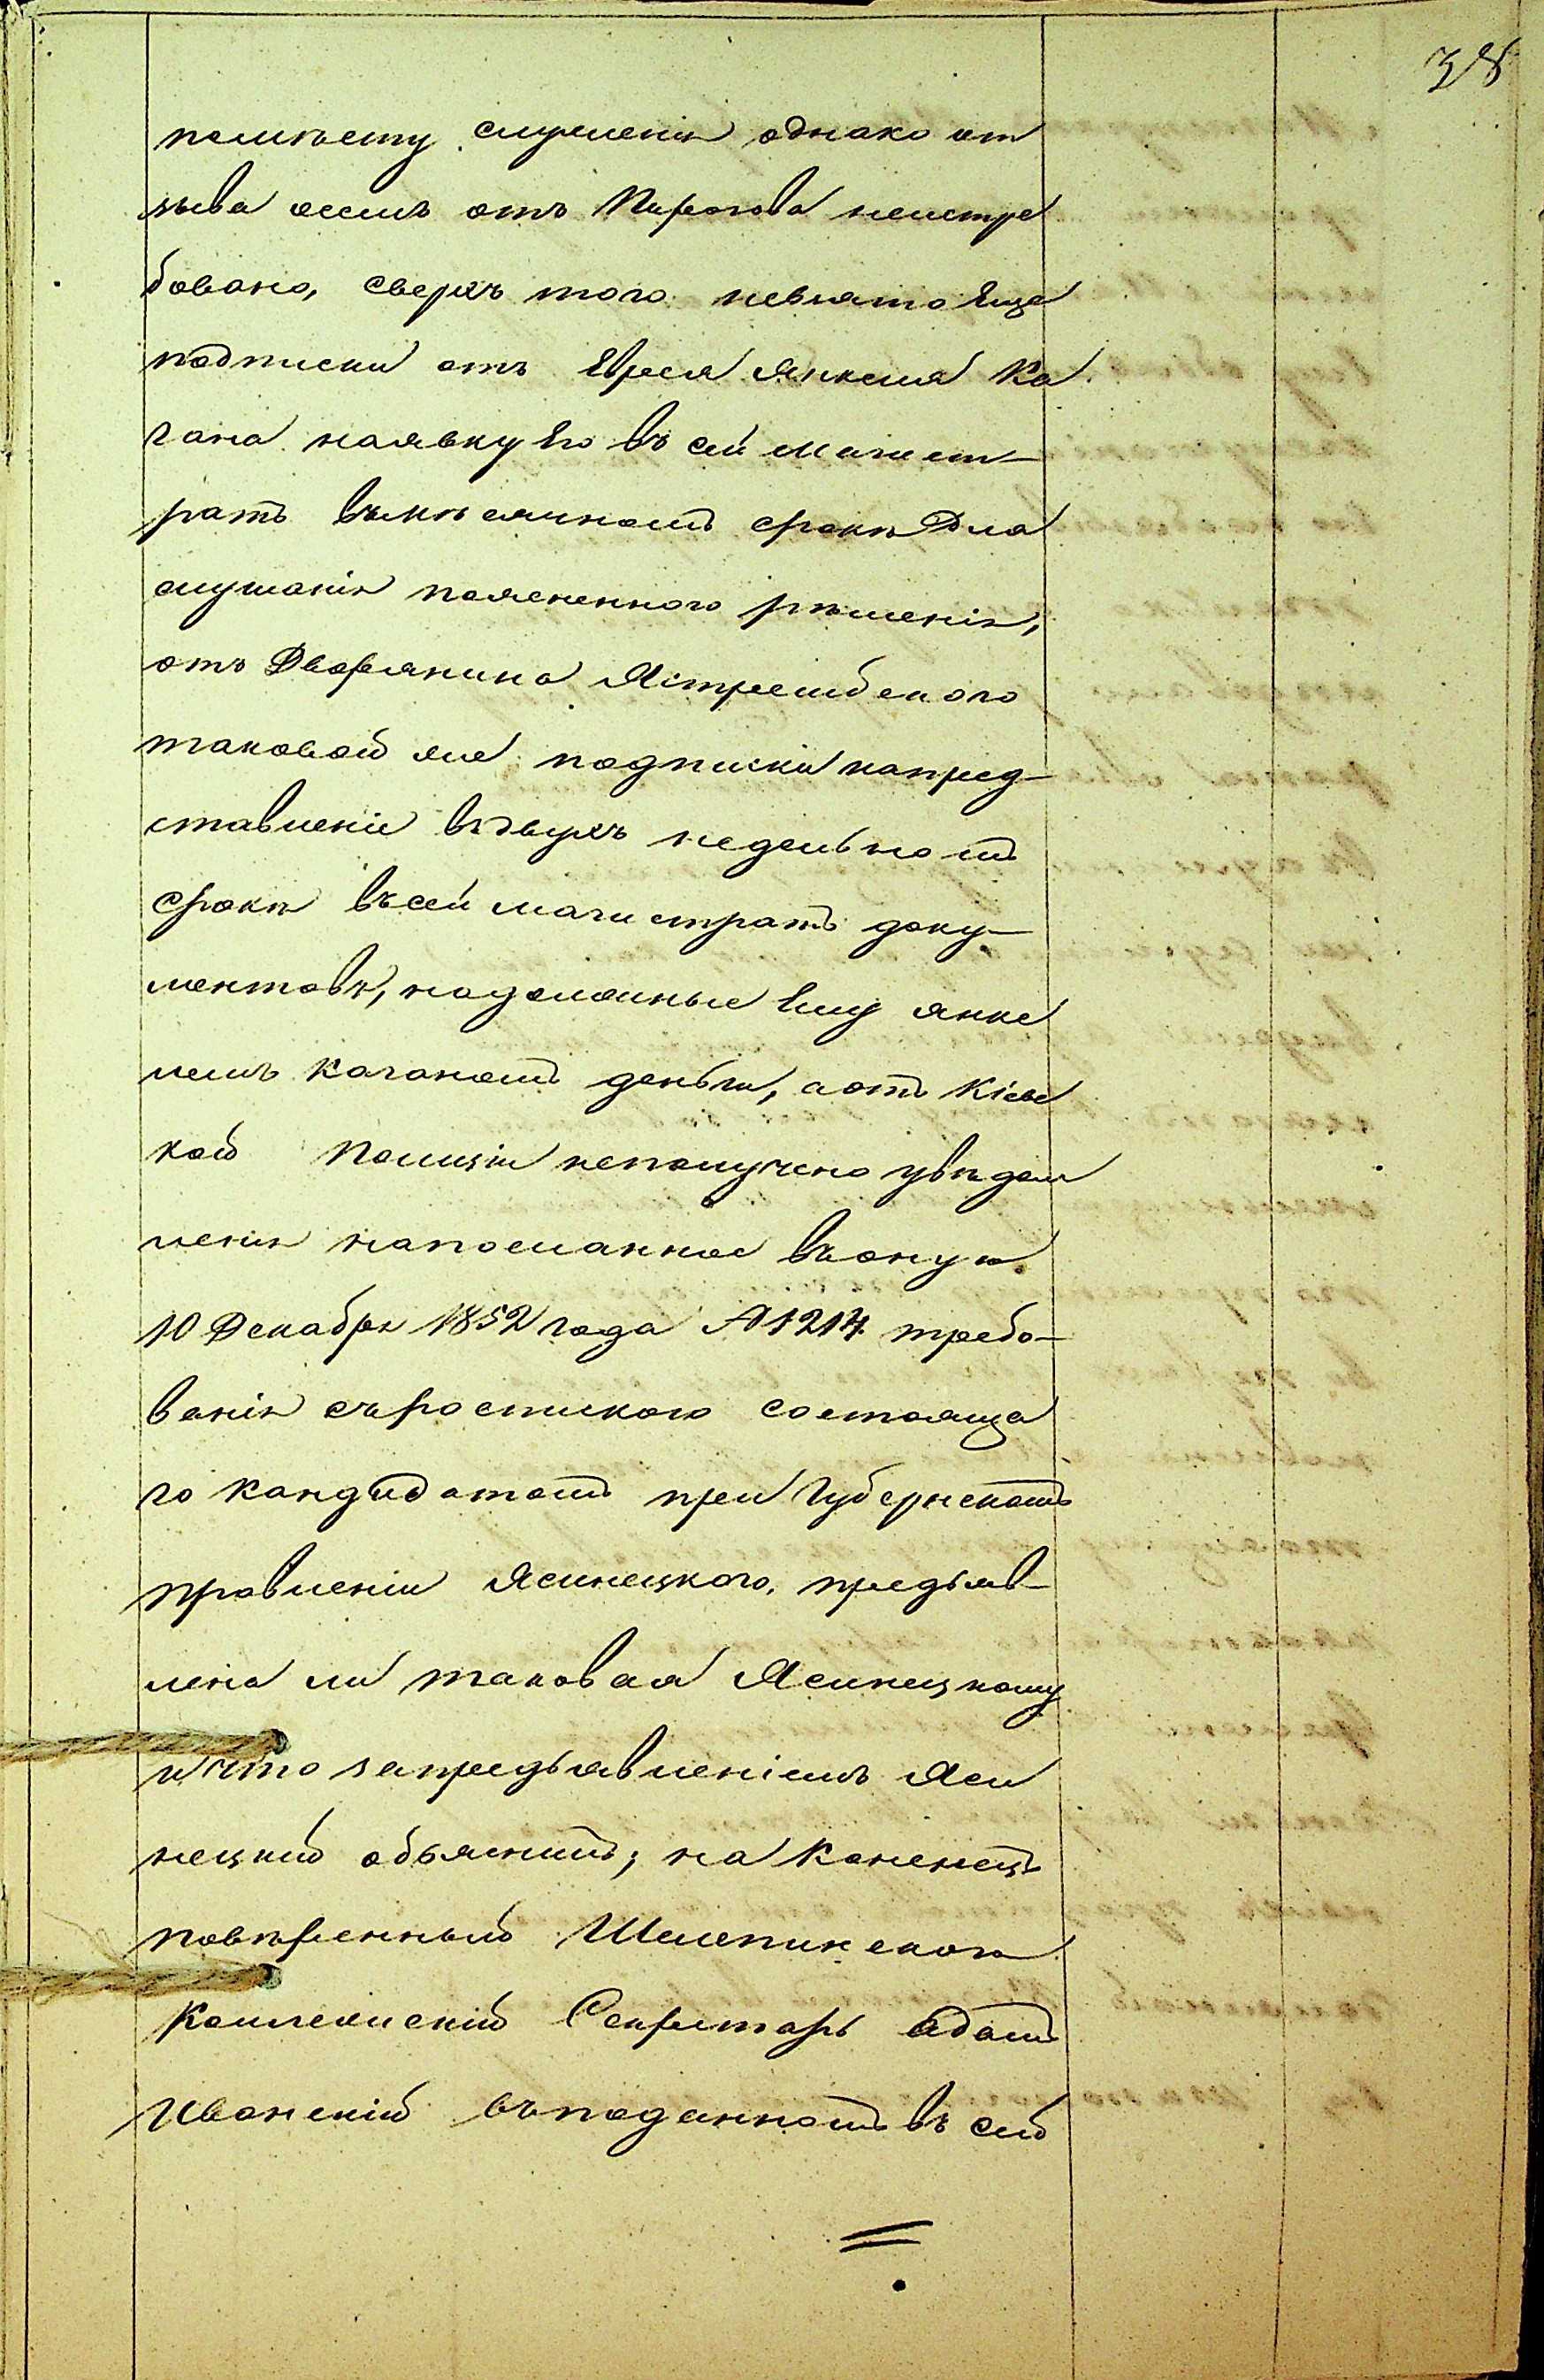 38
помѣсту служенія однако от
зыва осемъ отъ Пирогова неистре
бовано, сверхъ того невзято Еще
подписки отъ Еврея Янкеля Ка
гана наявку Его въ сей Магист-
ратъ вмѣсячномъ срокѣ Для
слушанія поясненного рѣшенія,
отъ Дворянина Ястрембского
таковой же подписки напред-
ставленіе въдвухъ недельномъ
срокѣ въсей магистратъ доку-
ментовъ, надолжные Ему Янке
лемъ Каганомъ деньги, аотъ Кіевс
кой Полиціи неполучено увѣдом
ленія напосланное въоную
10 Декабря 1852 года № 1214 требо-
ванія съроспискою состояща
го кандидатомъ при Губернскомъ
правленіи Ясинецкого, предъяв-
лена ли таковая Ясинецкому
ичто запредъявленіемъ Яси
нецкий объяснитъ; на Конецъ
повѣренный Шлепинской
Коллежскій Секретарь Адамъ
Иванскій въподанномъ въ сей